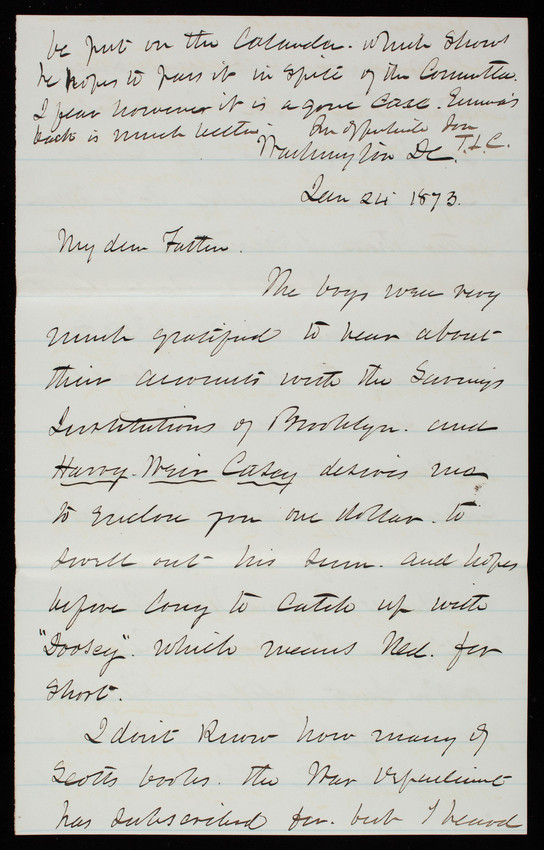 be put on the Calendar. which Shows
he hopes to pass it in spite of the Committee.
I fear however it is a gone case. Emma's
back is much better. Your affectionate Son
T.L.C.
Washington DC.
Jan 24 1873.
My dear Father.
The boys were very
much gratified to hear about
their accounts with the Savings
Institutions of Brooklyn. and
Harry. Weir Casey desires me
to enclose you one dollar. to
swell out his sum. and hopes
before long to catch up with
"Doosey". which means Ned. for
short.
I don't know how many of
Scotts books. the War Department
has subscribed for. but I heard